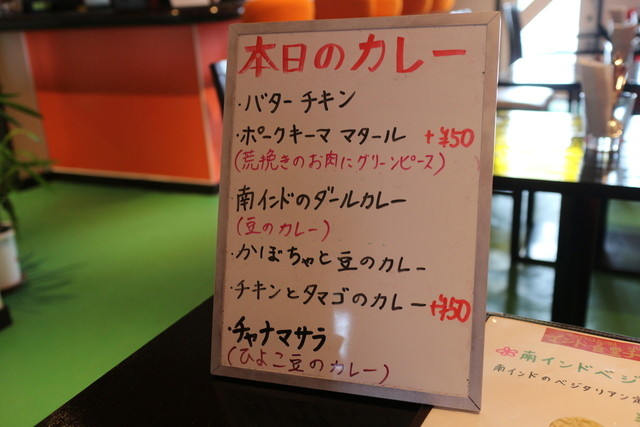 本日のカレー
・バターチキン
・ポークキーママタール +¥50
(荒挽きのお肉にグリーンピース)
南インドのダールカレー
(豆のカレー)
・かぼちゃと豆のカレー
・チキンとタマゴのカレー +¥50
・チャナマサラ
(ひよこ豆のカレー)
南インドベジ
南インドのベジタリアン